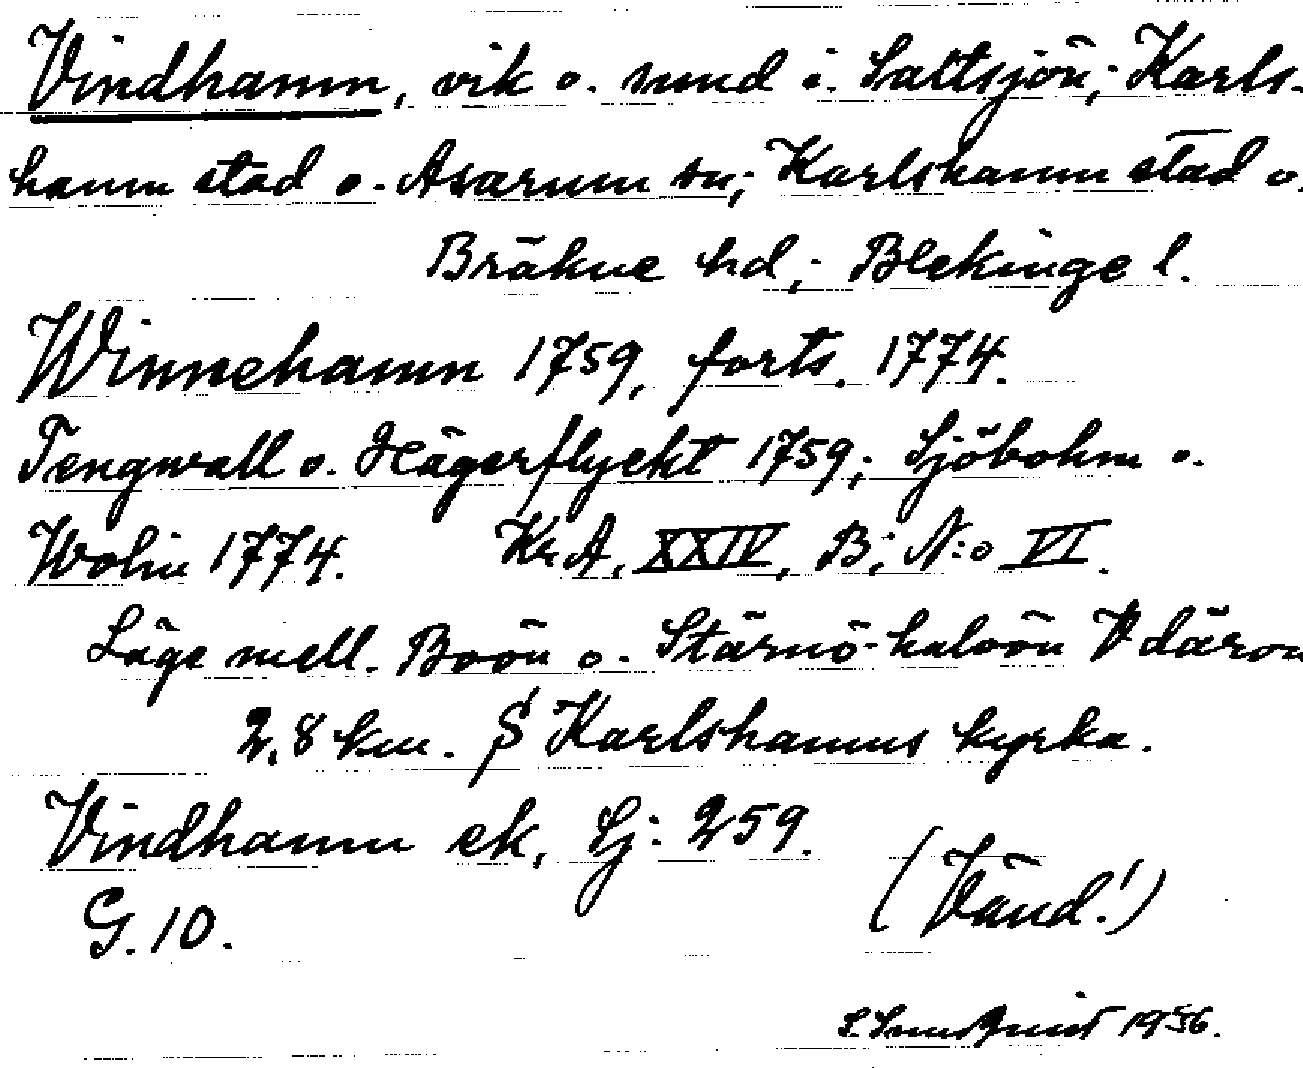 Vindhamn, vik o. sund i Saltsjön; Karls-
hamn stad o. Asarum sn; Karlshamn stad o.
Bräkne hd; Blekinge l.
Winnehamn 1759, forts. 1774.
Tengwall o. Hägerflyckt 1759; Sjöbohm o.
Wolin 1774. KrA, XXIV, B; N:o VI.
Läge mell. Boön o. Stärnö-halvön V därom
2,8 km. S Karlshamns kyrka.
Vindhamn ek. Sj: 259.
G. 10. (Vänd!)
1956.